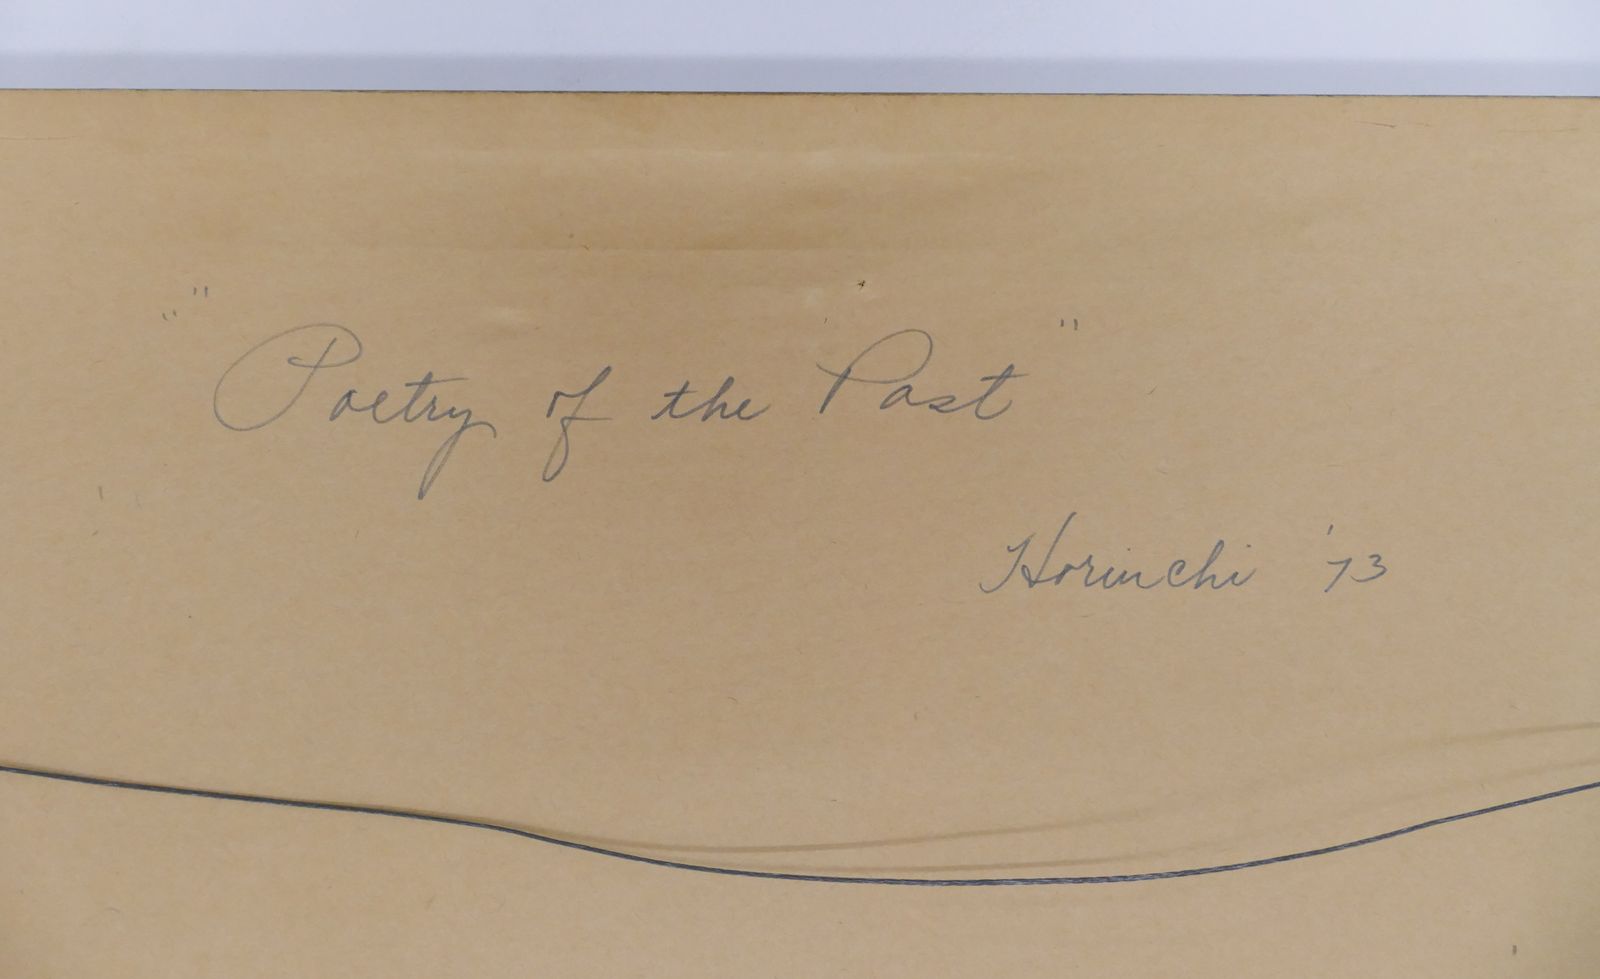 "Poetry of the Past"
Horiuchi '73